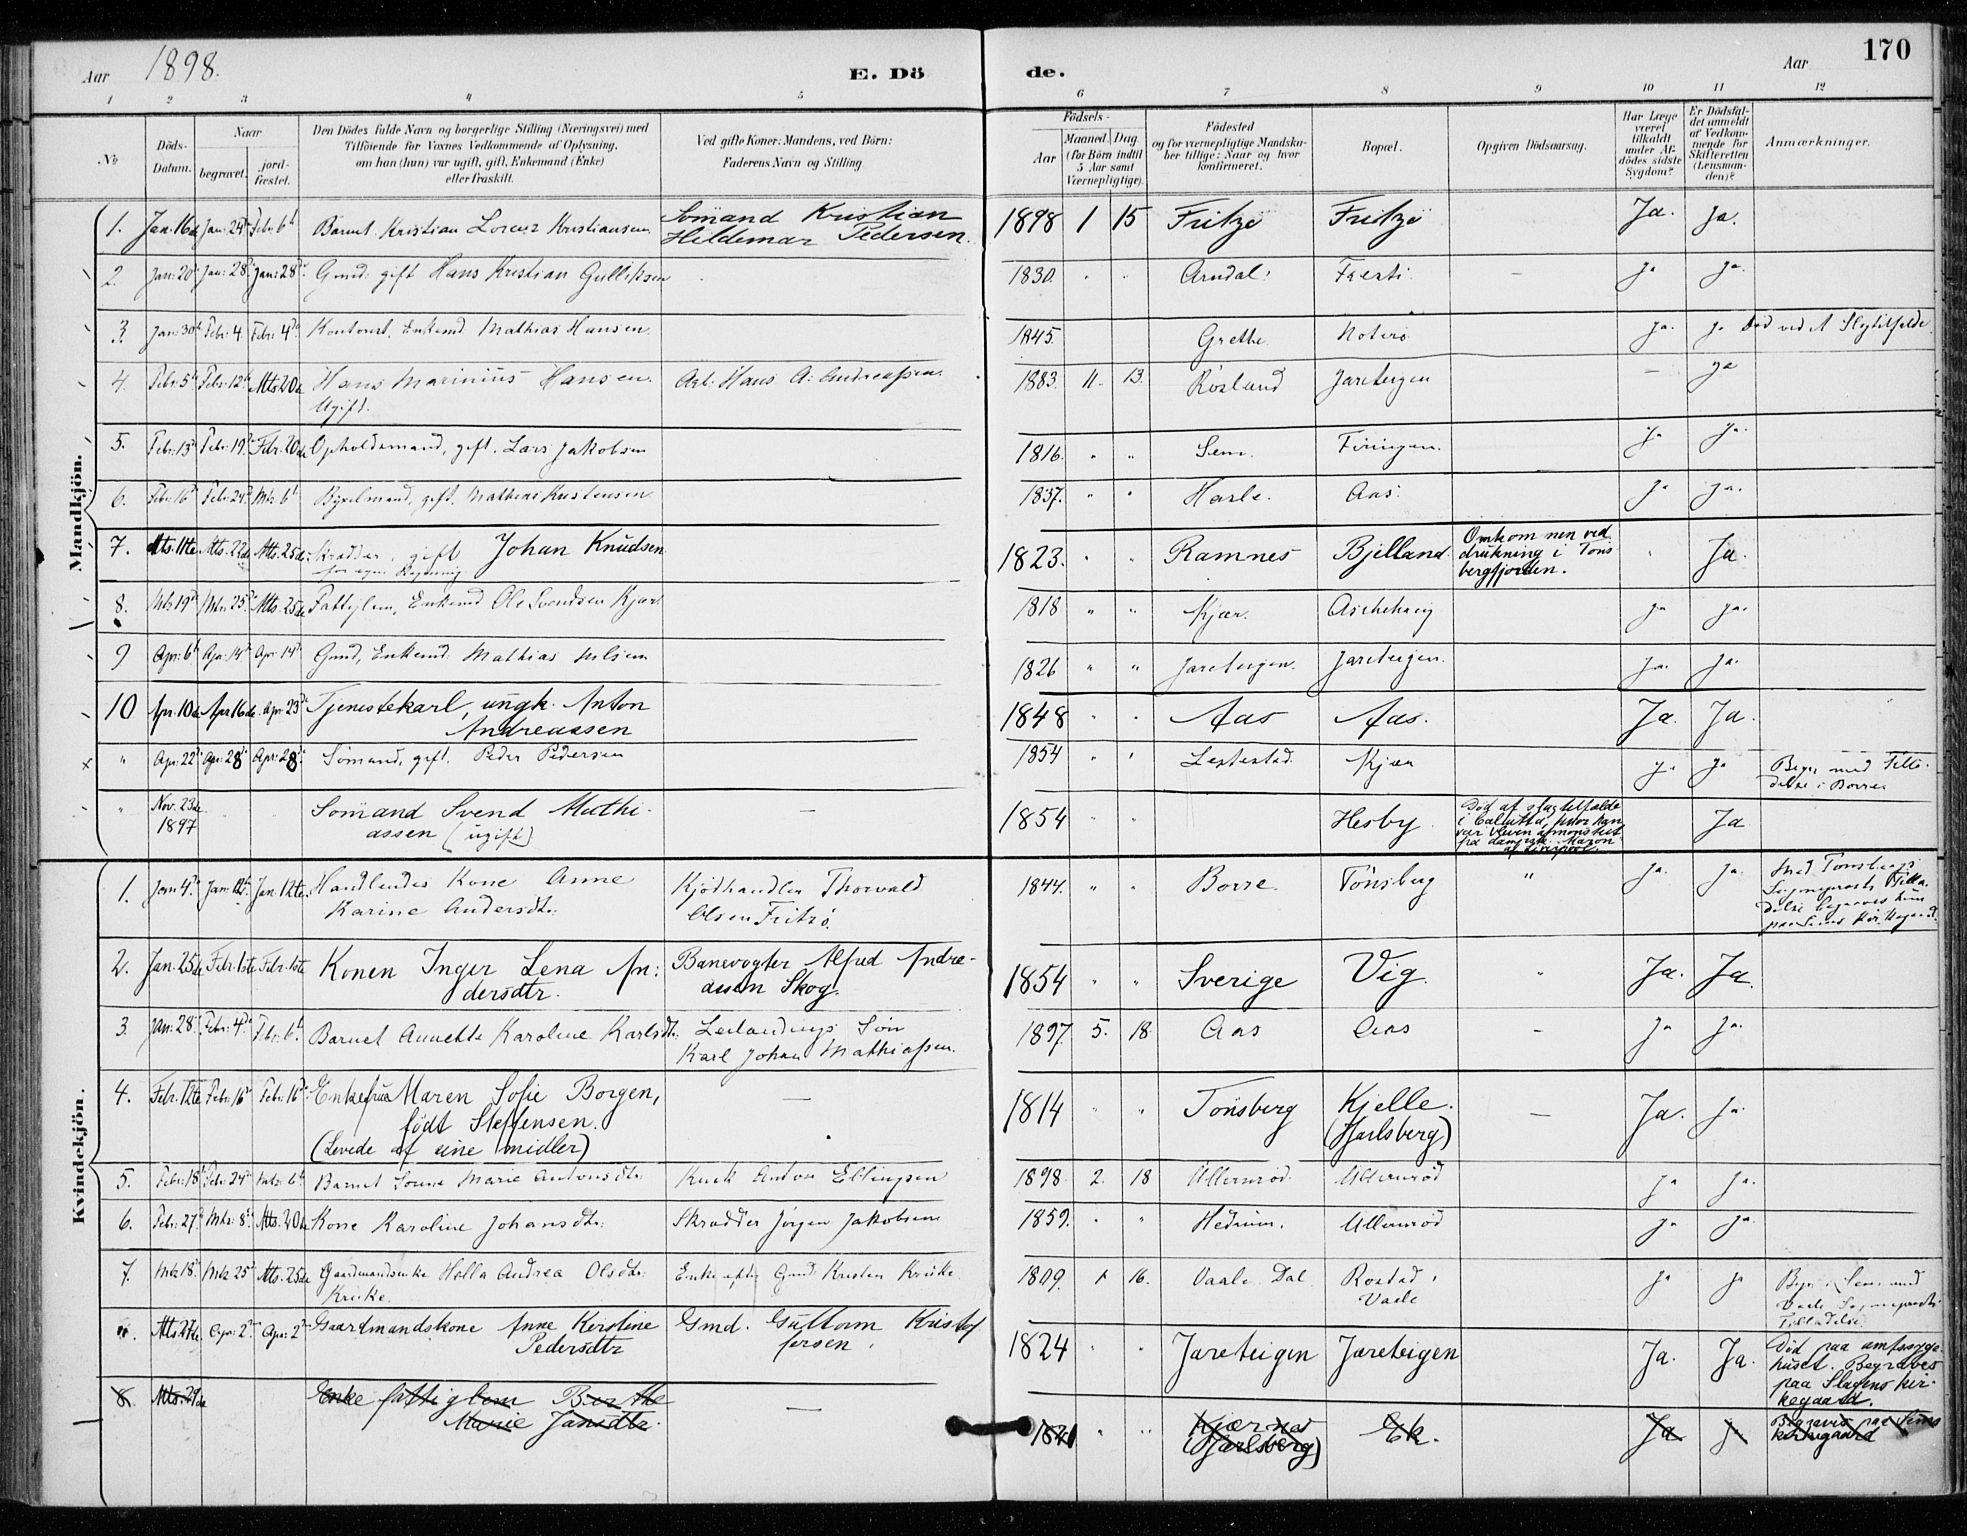 Aar 1898. E. Dö de. Aar 170
1 2 3 4 5 6 7 8 9 10 11 12
No
Döds-Datum.
Naar
begravet. jord-fæstet.
Den Dödes fulde Navn og borgerlige Stilling (Næringsvei) med
Tilföiende for Voxnes Vedkommende af Oplysning,
om han (hun) var ugift, gift, Enkemand (Enke)
eller fraskilt.
Ved gifte Koner: Mandens, ved Börn:
Faderens Navn og Stilling.
Födsels-
Aar Maaned. Dag.
(for Börn indtil
5 Aar samt
Værnepligtige).
Födested
og for værnepligtige Mandska-
ber tillige: Naar og hvor
konfirmeret.
Bopæl.
Opgiven Dödsaarsag.
Har Læge
været
tilkaldt
under Af-
dödes sidste
Sygdom?
Er Dödsfal-
det anmeldt
af Vedkom-
mende for
Skifteretten
(Lensman-
den)?
Anmærkninger.
Mandkjön.
1. Jan. 16de Jan: 24de Febr: 6te Barnet Kristian Lorenz Kristiansen Sömand Kristian Hildemar Pedersen. 1898 1 15 Fritzö Fritzö Ja. Ja.
2. Jan: 20de Jan: 28de Jan: 28de Gmd: gift Hans Kristian Gulliksen 1830. " " Arndal: — Ja Ja.
3. Jan: 30te Febr: 4 Febr: 4de Enkemd Mathias Hansen. 1845. Grethe Noterö Ja. Ja Död ved et Slagtilfelde.
4. Febr: 5te Febr: 12te Mts. 20de Hans Marinius Hansen. Ugift. Arb. Hans A. Andreassen. 1883. 11. 13. Rösland Jareteigen — Ja
5. Febr: 13de Febr: 19de Febr. 20de Opholdsmand, gift, Lars Jakobsen 1816. " " Sem. Ja Ja.
6. Febr: 16de Febr: 24de Mts. 6te Byxelmand, gift, Mathias Kristensen 1837. " " Aas. Ja Ja.
7. Mts. 11te Mts. 22de Mts. 25de Skrædder, gift Johan Knudsen for egen Regning 1823. " " Ramnes Bjelland. Omkommen ved drukning i Töns bergfjorden. " Ja.
8. Mts 19de Mts. 25de Mts. 25de Fattiglem, Enkemd Ole Svendsen Kjær. 1818 " " Kjær. Aschehaug Ja Ja.
9 Apr: 6te Apr: 14de Apr: 14de Gmd, Enkemd: Mathias Nilsen 1826 " " Jareteigen. Jareteigen. Ja. Ja.
10 Apr. 10de Apr 16de Apr. 23de Tjenestekarl, ungk. Anton Andreassen 1848 " " Aas Aas. Ja. Ja.
" Apr. 22de Apr: 28de Apr: 28de Sömand, gift, Peder Pedersen 1854 " " Kjær Ja. Ja Begr. med Tilladelse i Borre
" Nov. 23de 1897 " " Sömand Svend Mathiassen (ugift) — 1854 " " Hesby. Död af slagtilfælde i Calcutta, hvor han var bleven afmönstret fra dampsk. Mazon af Liverpool. Ja
Kvindekjön.
1. Jan 4de Jan: 12te Jan. 12te Handlendes Kone Anne Karine Andersdtr. Kjödhandler Thorvald Olsen Fritzö. 1844. " " Borre Tönsberg " Ja. Ja. Med Tönsbergs Sogneprests Tilladelse begraves hun paa Sems Kirkegaard.
2. Jan. 25de Febr. 1ste Febr. 1ste Konen Inger Lena Andersdtr. Banevogter Alfred Andreassen Skog. 1854 " " Sverige Vig. " Ja. Ja
3 Jan: 28de Febr: 4de Febr: 6te Barnet Annette Karoline Karlsdtr. Leilændings Sön Karl Johan Mathiassen. 1897 5. 18 Aas Aas — Ja Ja.
4. Febr. 12te Febr: 16de Febr: 16de Enkefrue Maren Sofie Borgen, födt Steffensen. (Levede af sine midler) — 1814 " " Tönsberg Kjelle. (Jarlsberg) — Ja. Ja.
5. Febr: 18de Febr: 24de Mts: 6te Barnet Marie Antonsdtr. Kusk Anton Ellingsen 1898. 2. 18 Ullernröd Ullernröd Ja Ja.
6. Feb: 27de Mts: 8de Mts. 20de Kone Karoline Johansdtr. Skrædder Jörgen Jakobsen 1859. " " Hedrum. Ullernröd Ja Ja
7. Mts 18de Mts 25de Mts. 25de Gaardmandsenke Helle Andrea Olsdtr. Krikke. Enke efter Gmd: Kristen Krikke. 1809. 1 16. Vaale Dal Vaale Ja Ja Begr. i Sem med Vaale Sogneprests Tilladelse
". Mts. 27de Apr: 2den Apr: 2den Gaardmandskone Anne Kerstine Pedersdtr Gmd. Guttorm Kristoffersen. 1824 " " Jareteigen Jareteigen Ja. Ja. Död paa amtssygehuset. Begraves paa Slagens kirkegaard.
8 Mts. 29de Enke fattiglem Berthe Marie Jansdtr. — 1821 " " Kjærnes (Jarlsberg) Ek. Ja J. Begraves paa Sems kirkegaard